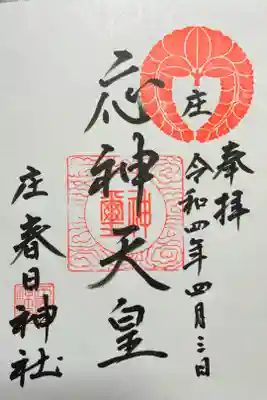 奉拝
令和四年四月三日
庄
応神天皇
神璽
庄春日神社